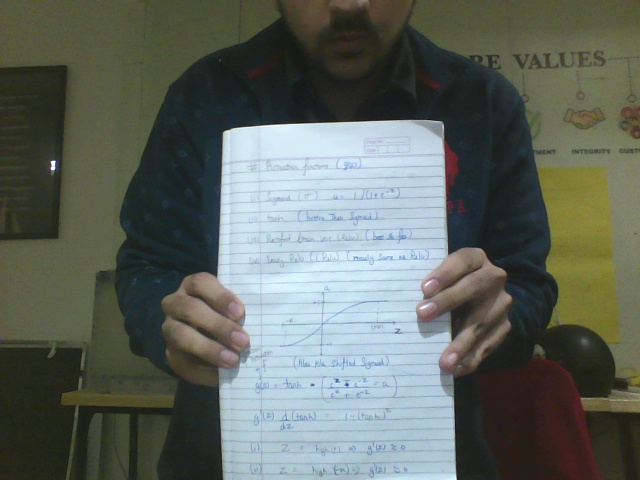 RE VALUES
MENT INTEGRITY CUST
# Activation functions (g(z))
(i) Sigmoid (σ) a = 1/(1+e^-z)
(ii) tanh (better than sigmoid)
(iii) Rectified linear unit (Relu)
(iv) Leaky Relu (L Relu) (mostly same as Relu)
a
z
(Also k/a shifted Sigmoid)
g(z) = tanh = (e^z - e^-z = a
e^z + e^-z)
g'(z) d (tanh) = 1-(tanh)^2
dz
(i) Z = high(+) ⇒ g'(z) ≈ 0
(ii) Z = high(-) ⇒ g'(z) ≈ 0